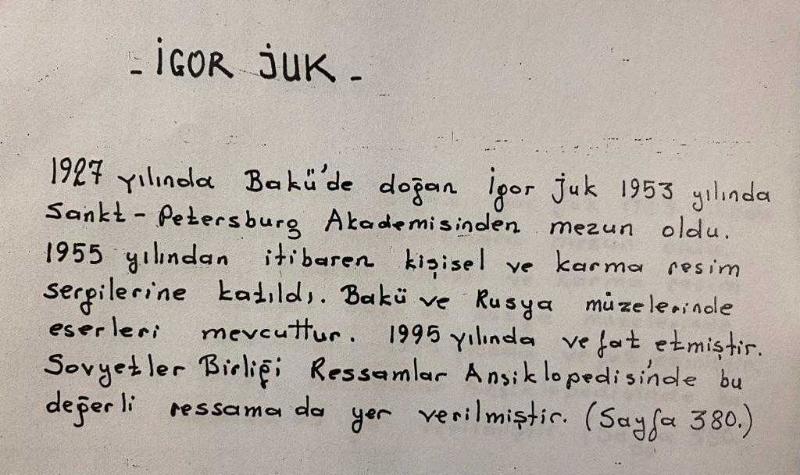 - İGOR JUK -
1927 yılında Bakü'de doğan İgor Juk 1953 yılında
Sankt - Petersburg Akademisinden mezun oldu.
1955 yılından itibaren kişisel ve karma resim
sergilerine katıldı. Bakü ve Rusya müzelerinde
eserleri mevcuttur. 1995 yılında vefat etmiştir.
Sovyetler Birliği Ressamlar Ansiklopedisi'nde bu
değerli ressama da yer verilmiştir. (Sayfa 380.)